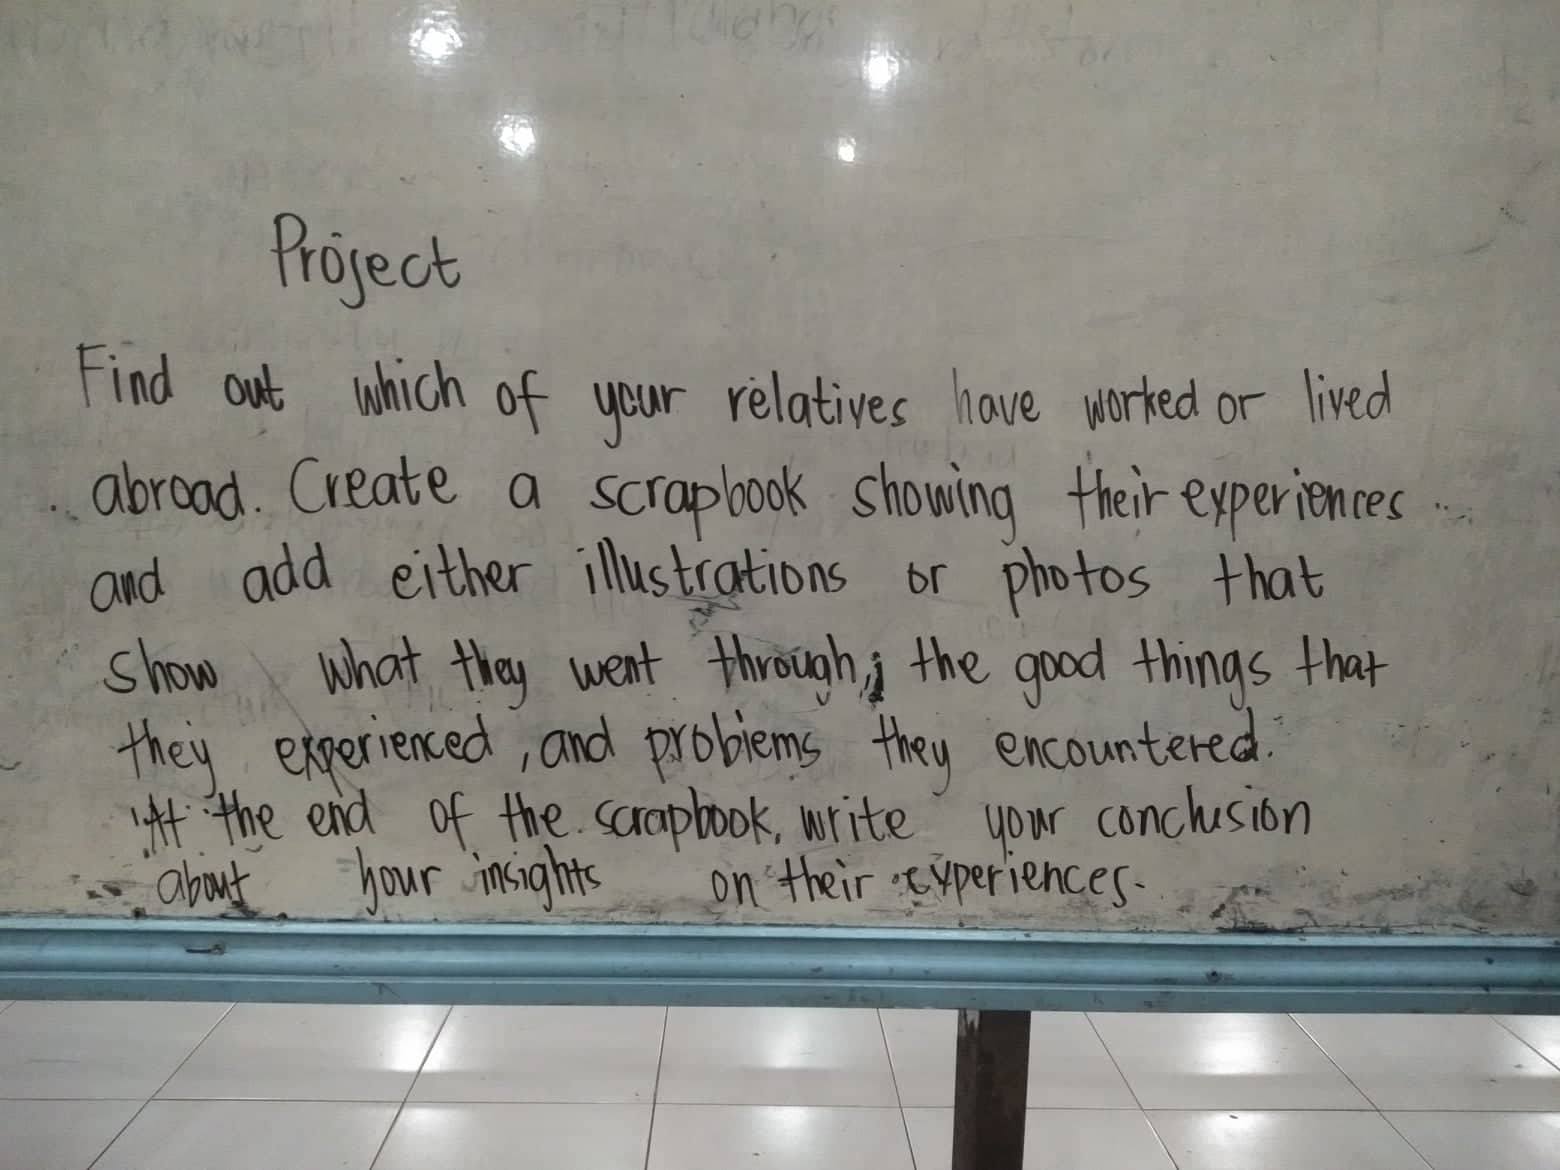 Project
Find out which of your relatives have worked or lived
abroad. Create a scrapbook showing their experiences
and add either illustrations or photos that
show what they went through; the good things that
they experienced, and problems they encountered.
At the end of the scrapbook, write your conclusion
about your insights on their experiences.